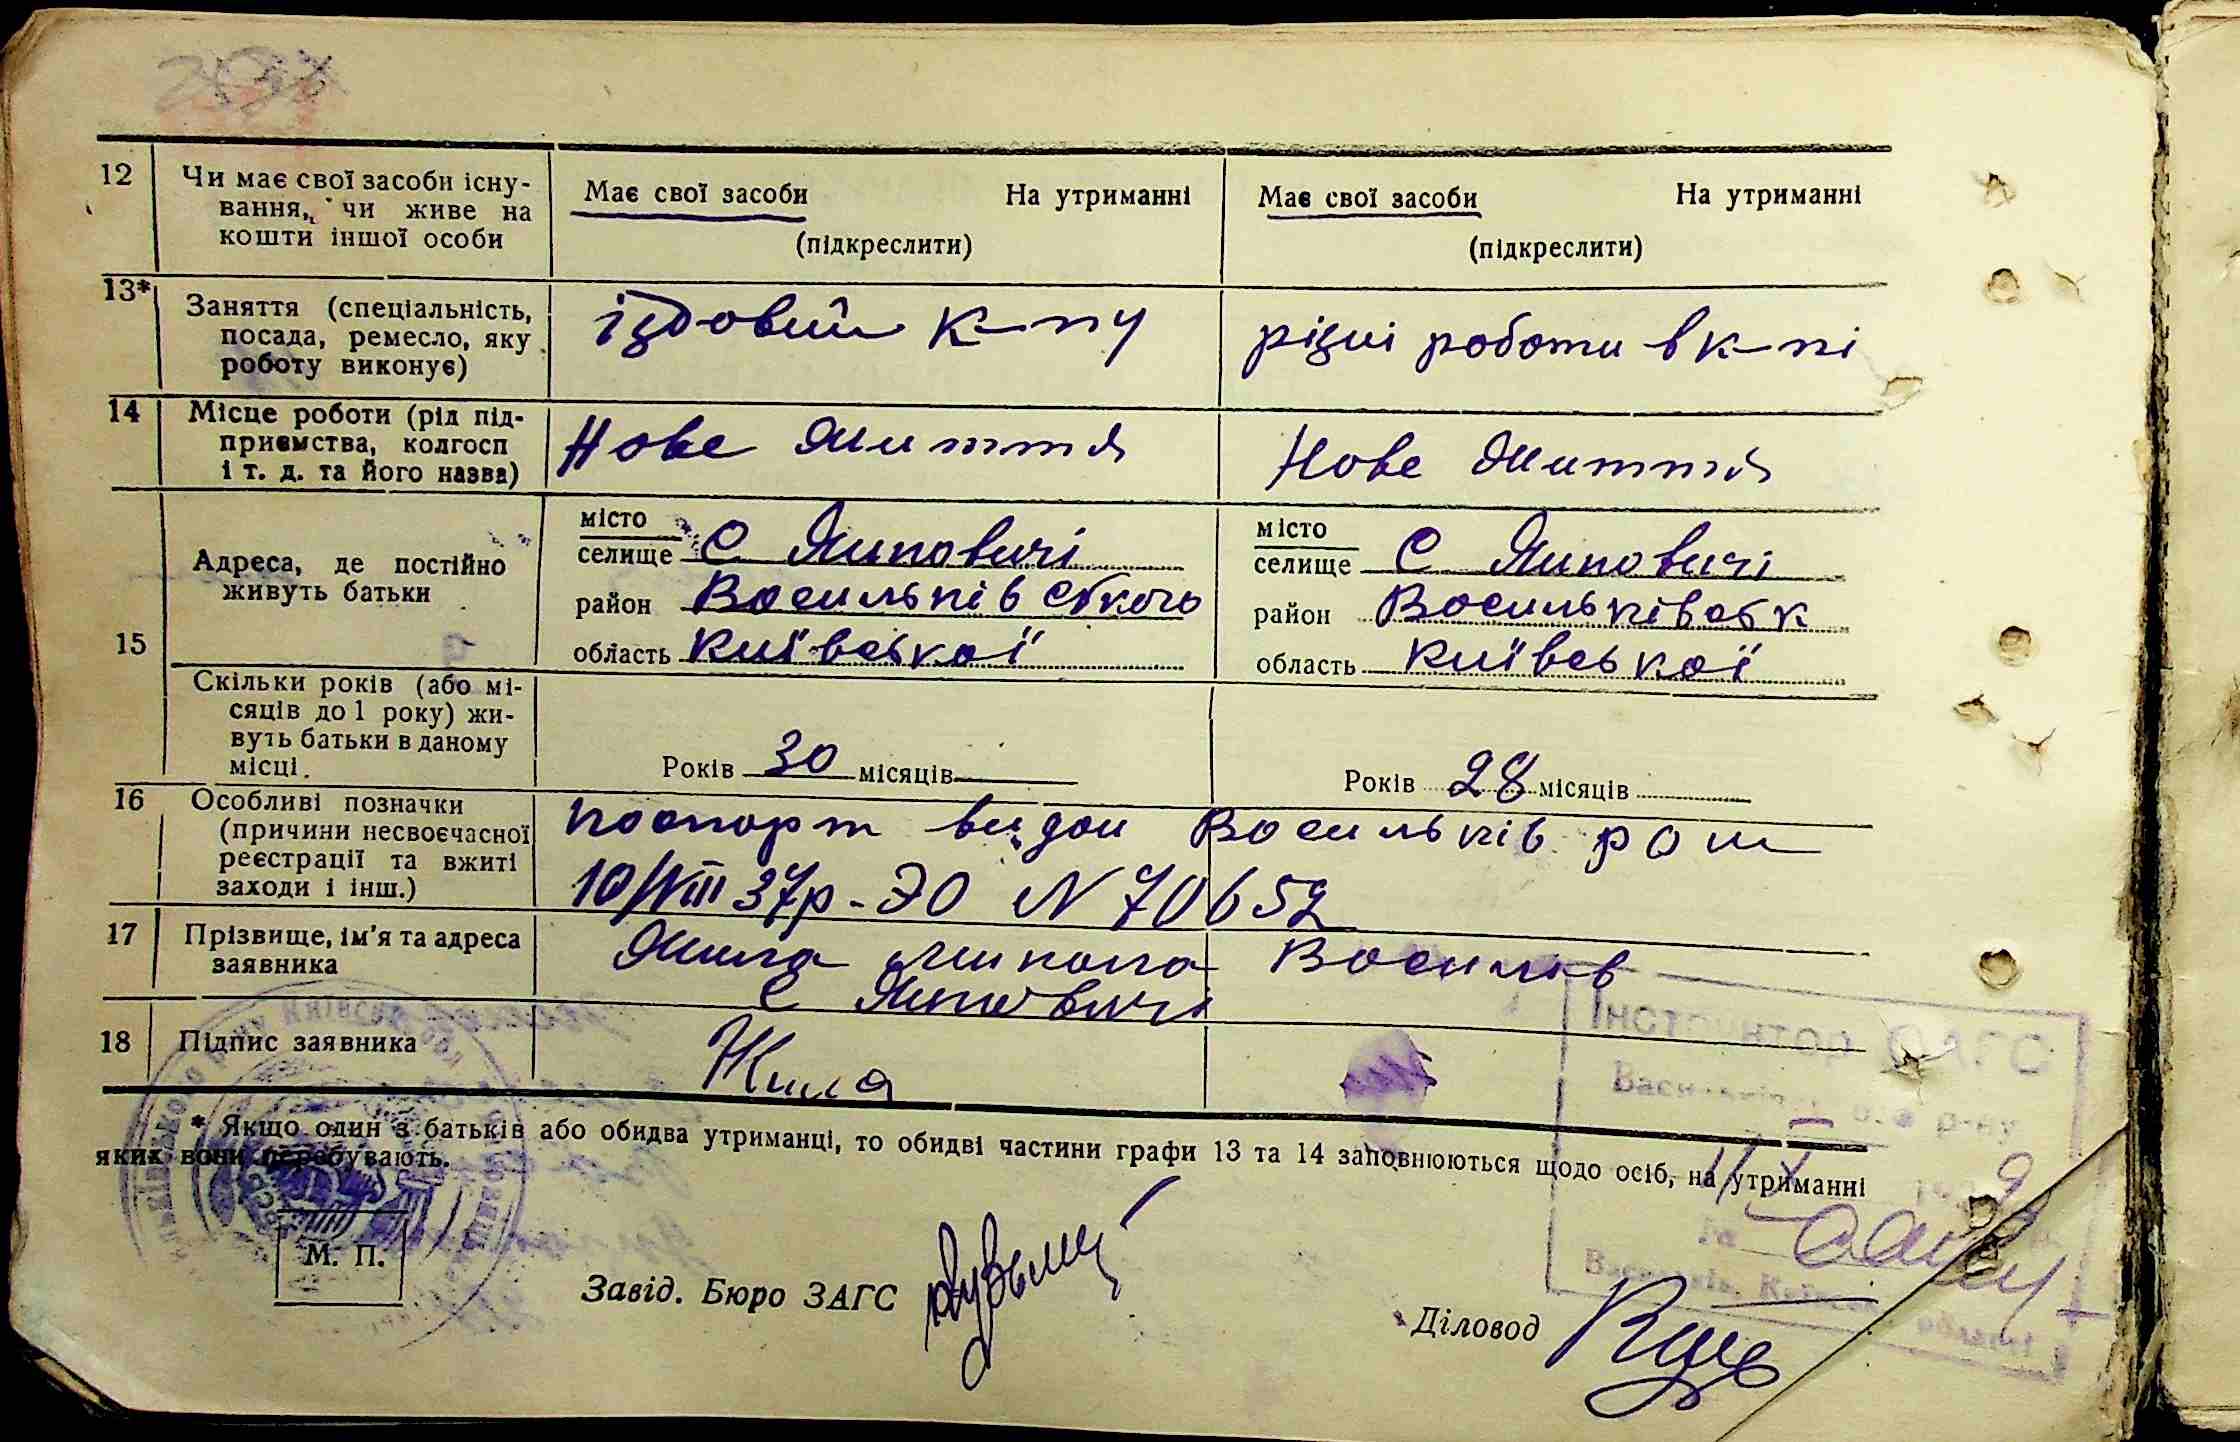 12 Чи має свої засоби існу-
вання, чи живе на
кошти іншої особи
Має свої засоби На утриманні
(підкреслити)
Має свої засоби На утриманні
(підкреслити)
13* Заняття (спеціальність,
посада, ремесло, яку
роботу виконує)
їздовий к-пу
різні роботи в к-пі
14 Місце роботи (рід під-
приємства, колгосп
і т. д. та його назва)
Нове Життя
Нове Життя
15
Адреса, де постійно
живуть батьки
місто
селище С Липовичі
район Васильківського
область Київської
місто
селище С Липовичі
район Васильківськ
область Київської
Скільки років (або мі-
сяців до 1 року) жи-
вуть батьки в даному
місці.
Років 30 місяців
Років 28 місяців
16 Особливі позначки
(причини несвоєчасної
реєстрації та вжиті
заходи і інш.)
паспорт видан Васильків
10/VIII 37р - ЭО N 701652
17 Прізвище, ім'я та адреса
заявника
Жила Микола Василів
С Липовичі
18 Підпис заявника
Жила
* Якщо один з батьків або обидва утриманці, то обидві частини графи 13 та 14 заповнюються щодо осіб, на утриманні
яких вони перебувають.
М. П.
Завід. Бюро ЗАГС
Діловод
Інспектор ЗАГС
р-ну
Васильків, Київськ області